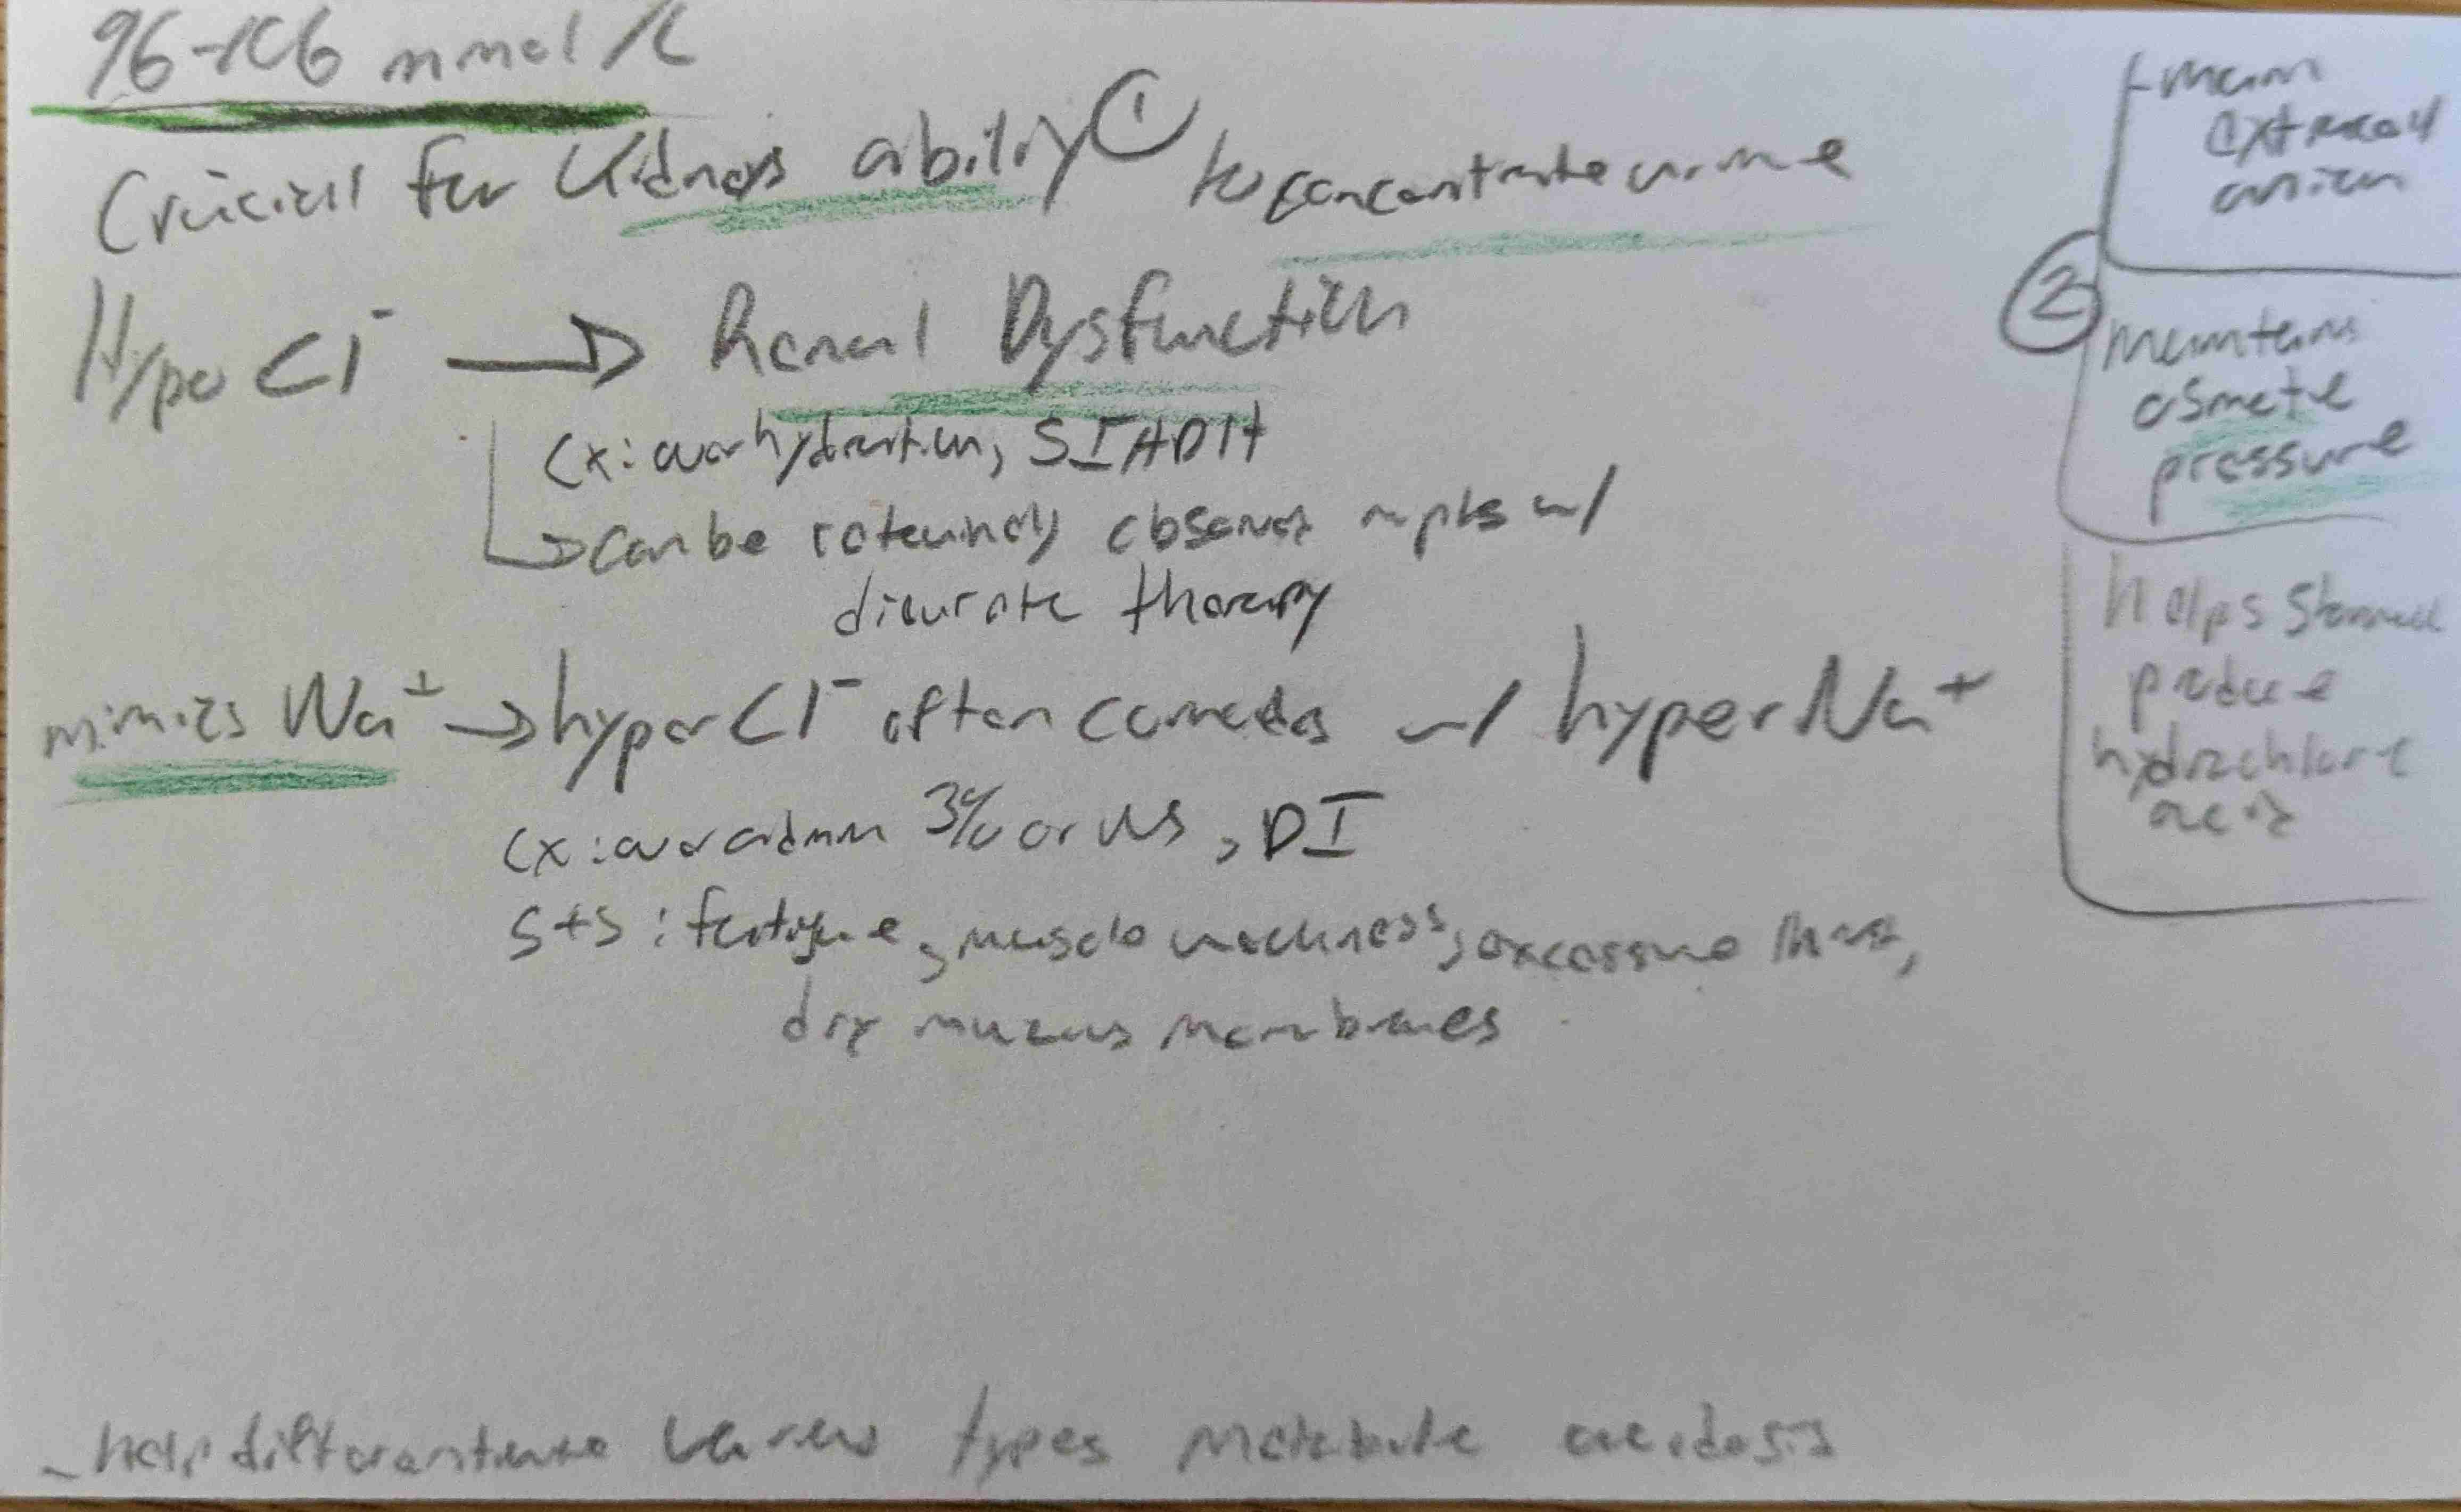 96-106 mmol/L
Crucial for Kidneys ability ① to concentrate urine
Hypo Cl⁻ → Renal Dysfunction
Cx: overhydration, SIADH
→ can be routinely observed in pts w/
diuretic therapy
mimics Na⁺ → hyper Cl⁻ often comes w/ hyper Na⁺
Cx: over admin 3% or NS, DI
S+S: fatigue, muscle weakness, excessive thirst,
dry mucus membranes
- help differentiate various types metabolic acidosis
- main
extracell
anion
②
maintains
osmotic
pressure
helps stomach
produce
hydrochloric
acid